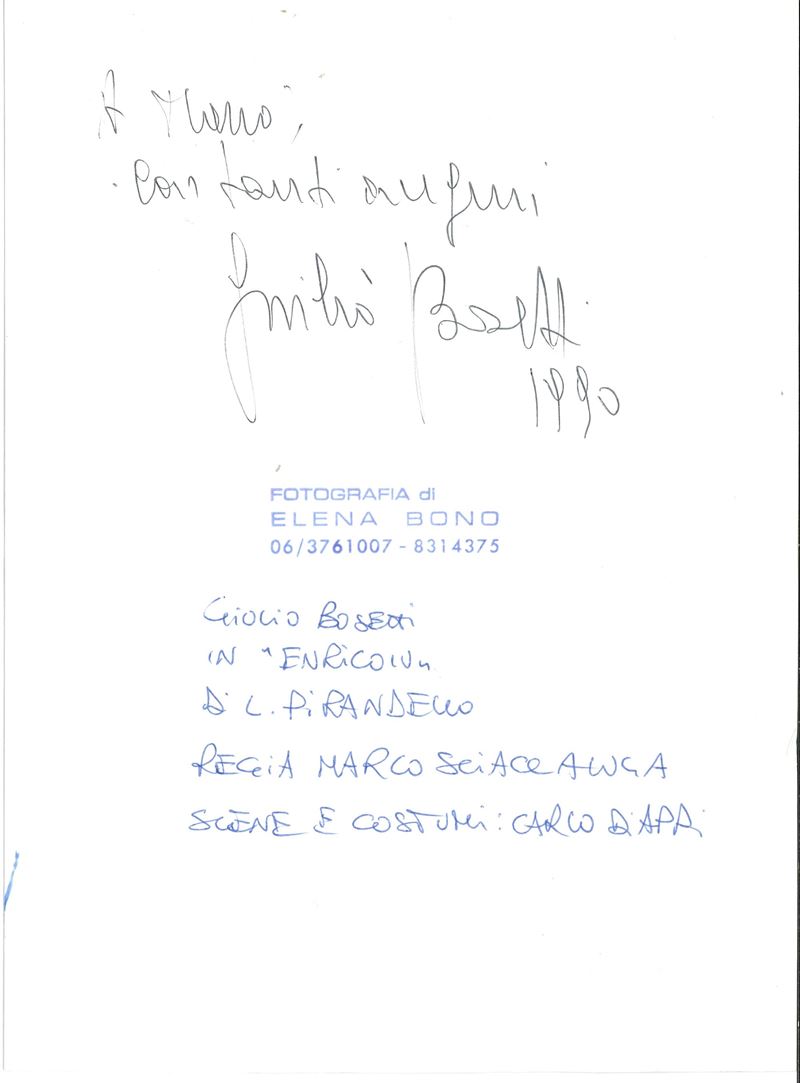 A
con tanti auguri
Giulio Bosetti
1990
FOTOGRAFIA di
ELENA BONO
06/3761007 - 8314375
GIULIO BOSETTI
IN "ENRICO IV"
DI L. PIRANDELLO
REGIA MARCO SCIACCALUGA
SCENE E COSTUMI: CARLO DIAPPI